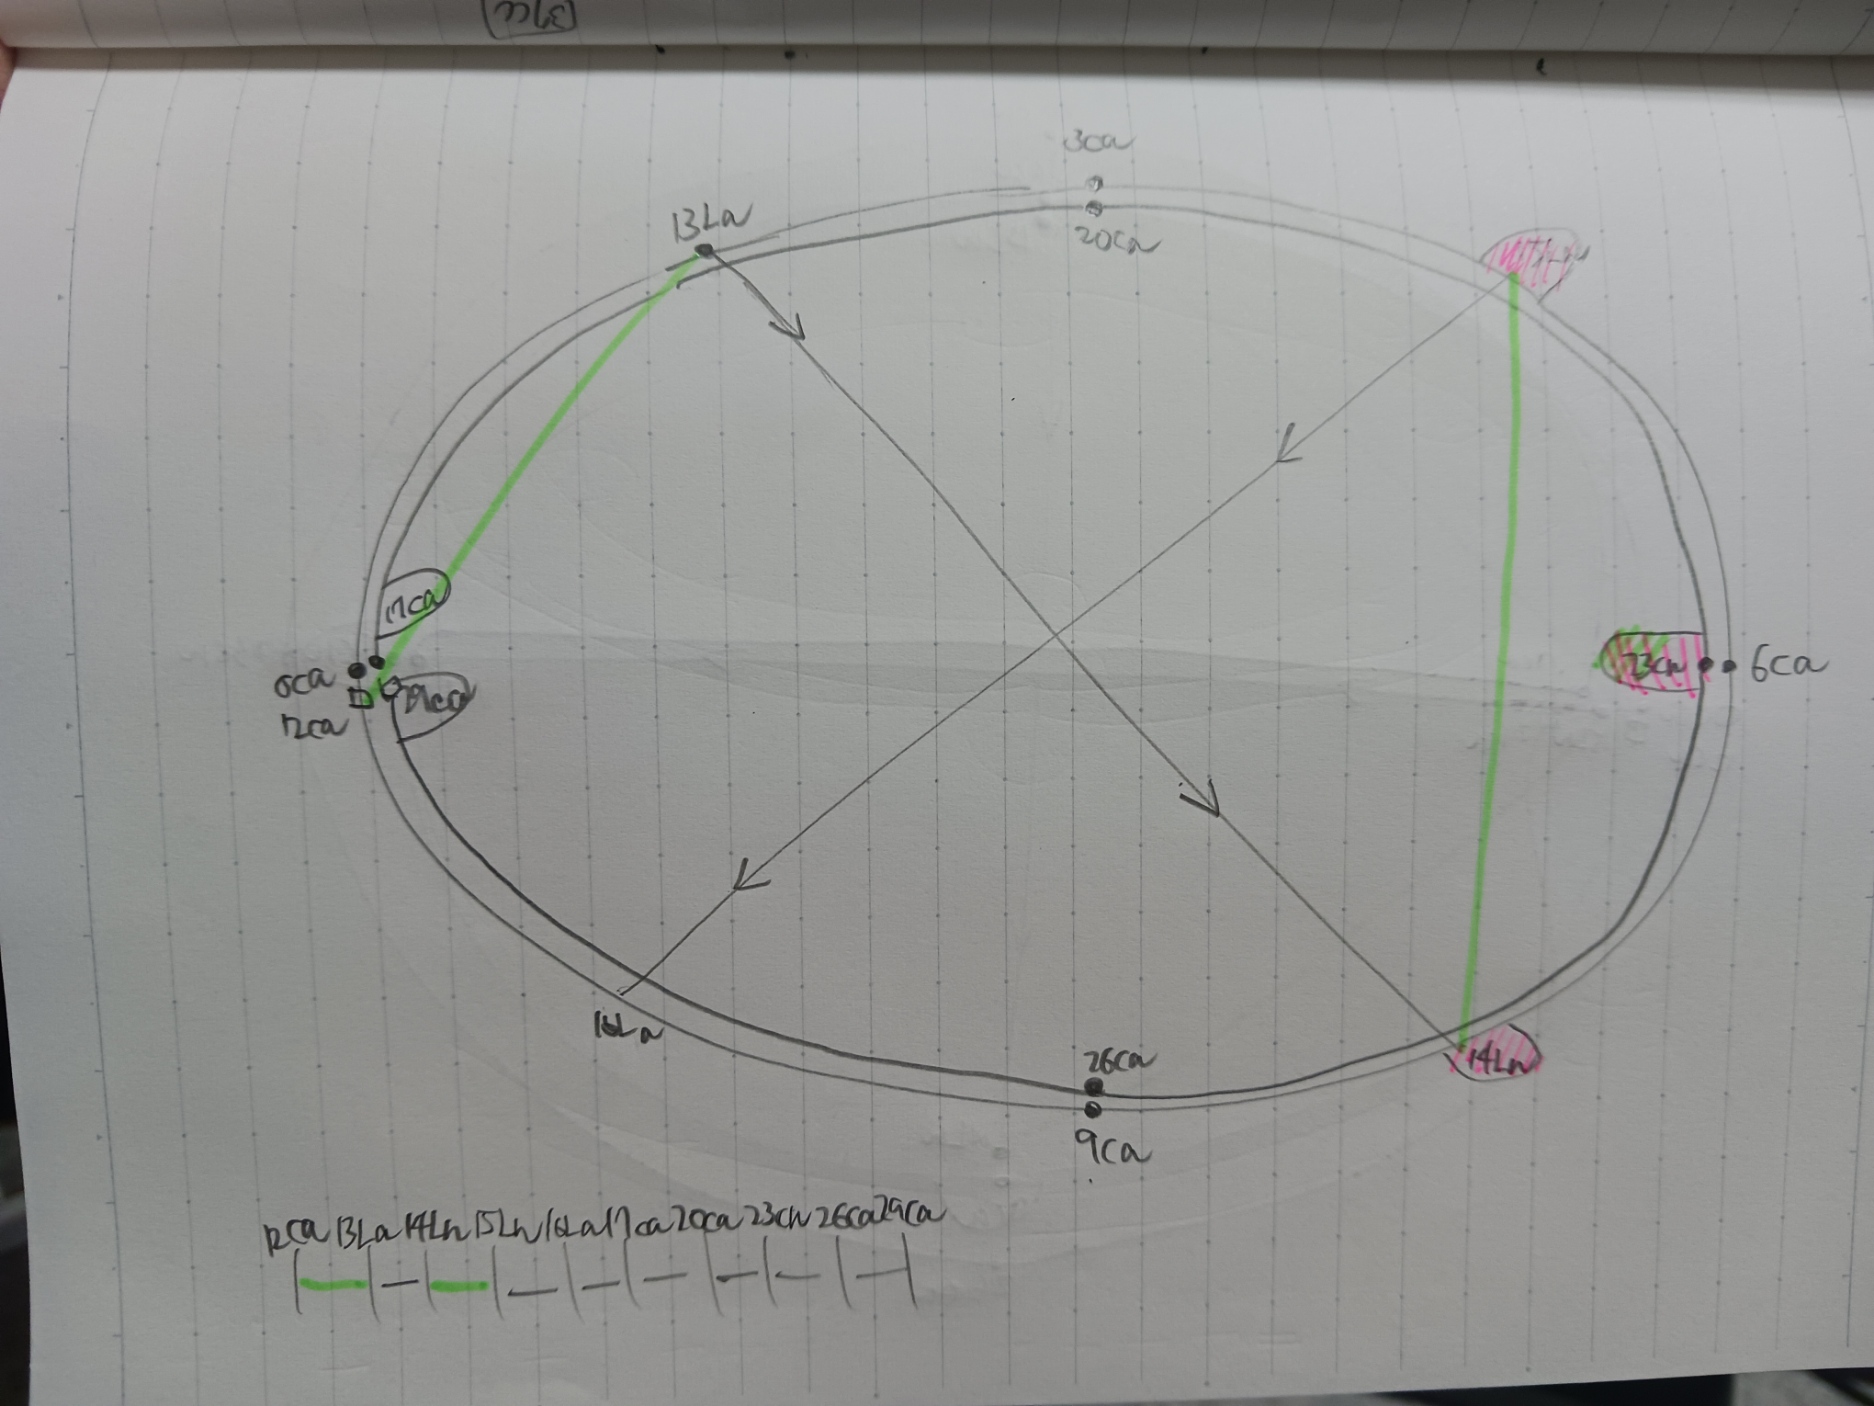 3ca
13La
20ca
17ca
0ca
29ca
12ca
23ca
6ca
16La
14Ln
26ca
9ca
12ca 13La 14Ln 15Ln 16La 17ca 20ca 23ca 26ca 29ca